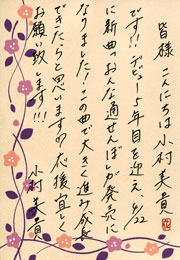 皆様 こんにちは 小村美貴
です!! デビュー5年目を迎え 4/22
に新曲のおんな通せんぼが発売に
なりました!この曲で大きく進み成長
できたらと思いますので応援宜しく
お願い致します!!!
小村美貴